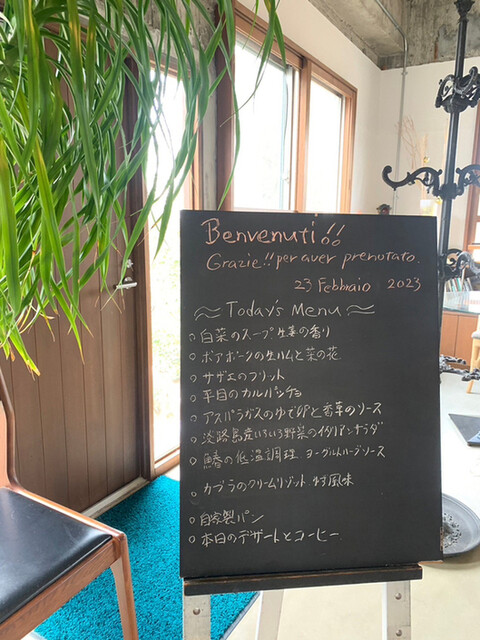 Benvenuti!!
Grazie!! per aver prenotato.
23 Febbraio 2023
Today's Menu
白菜のスープ 生姜の香り
ボアボーンの生ハムと菜の花
サザエのフリット
平目のカルパッチョ
アスパラガスのゆで卵と香草のソース
淡路島産いろいろ野菜のイタリアンサラダ
鰆の低温調理 ヨーグルトハーブソース
カブラのクリームリゾット 風味
自家製パン
本日のデザートとコーヒー